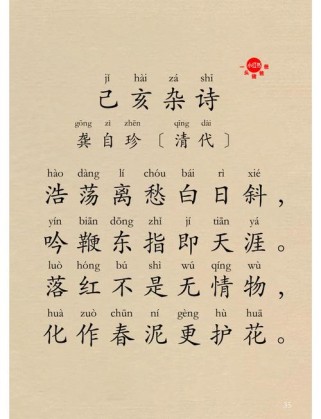 jǐ hài zá shī
己亥杂诗
gōng zì zhēn qīng dài
龚自珍〔清代〕
hào dàng lí chóu bái rì xié
浩荡离愁白日斜，
yín biān dōng zhǐ jí tiān yá
吟鞭东指即天涯。
luò hóng bú shì wú qíng wù
落红不是无情物，
huà zuò chūn ní gèng hù huā
化作春泥更护花。